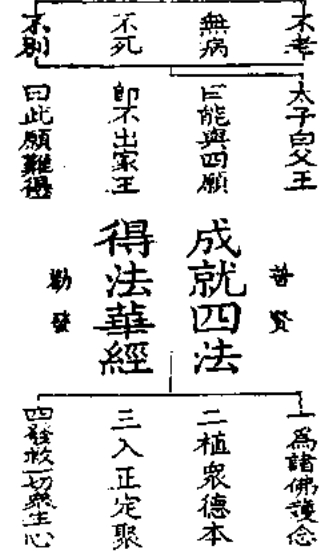 不老
無病
不死
不別
太子白父王
巨能與四願
即不出家王
曰此願難得
普賢
成就四法
得法華經
勸發
一為諸佛護念
二植眾德本
三入正定聚
四發救一切眾生心